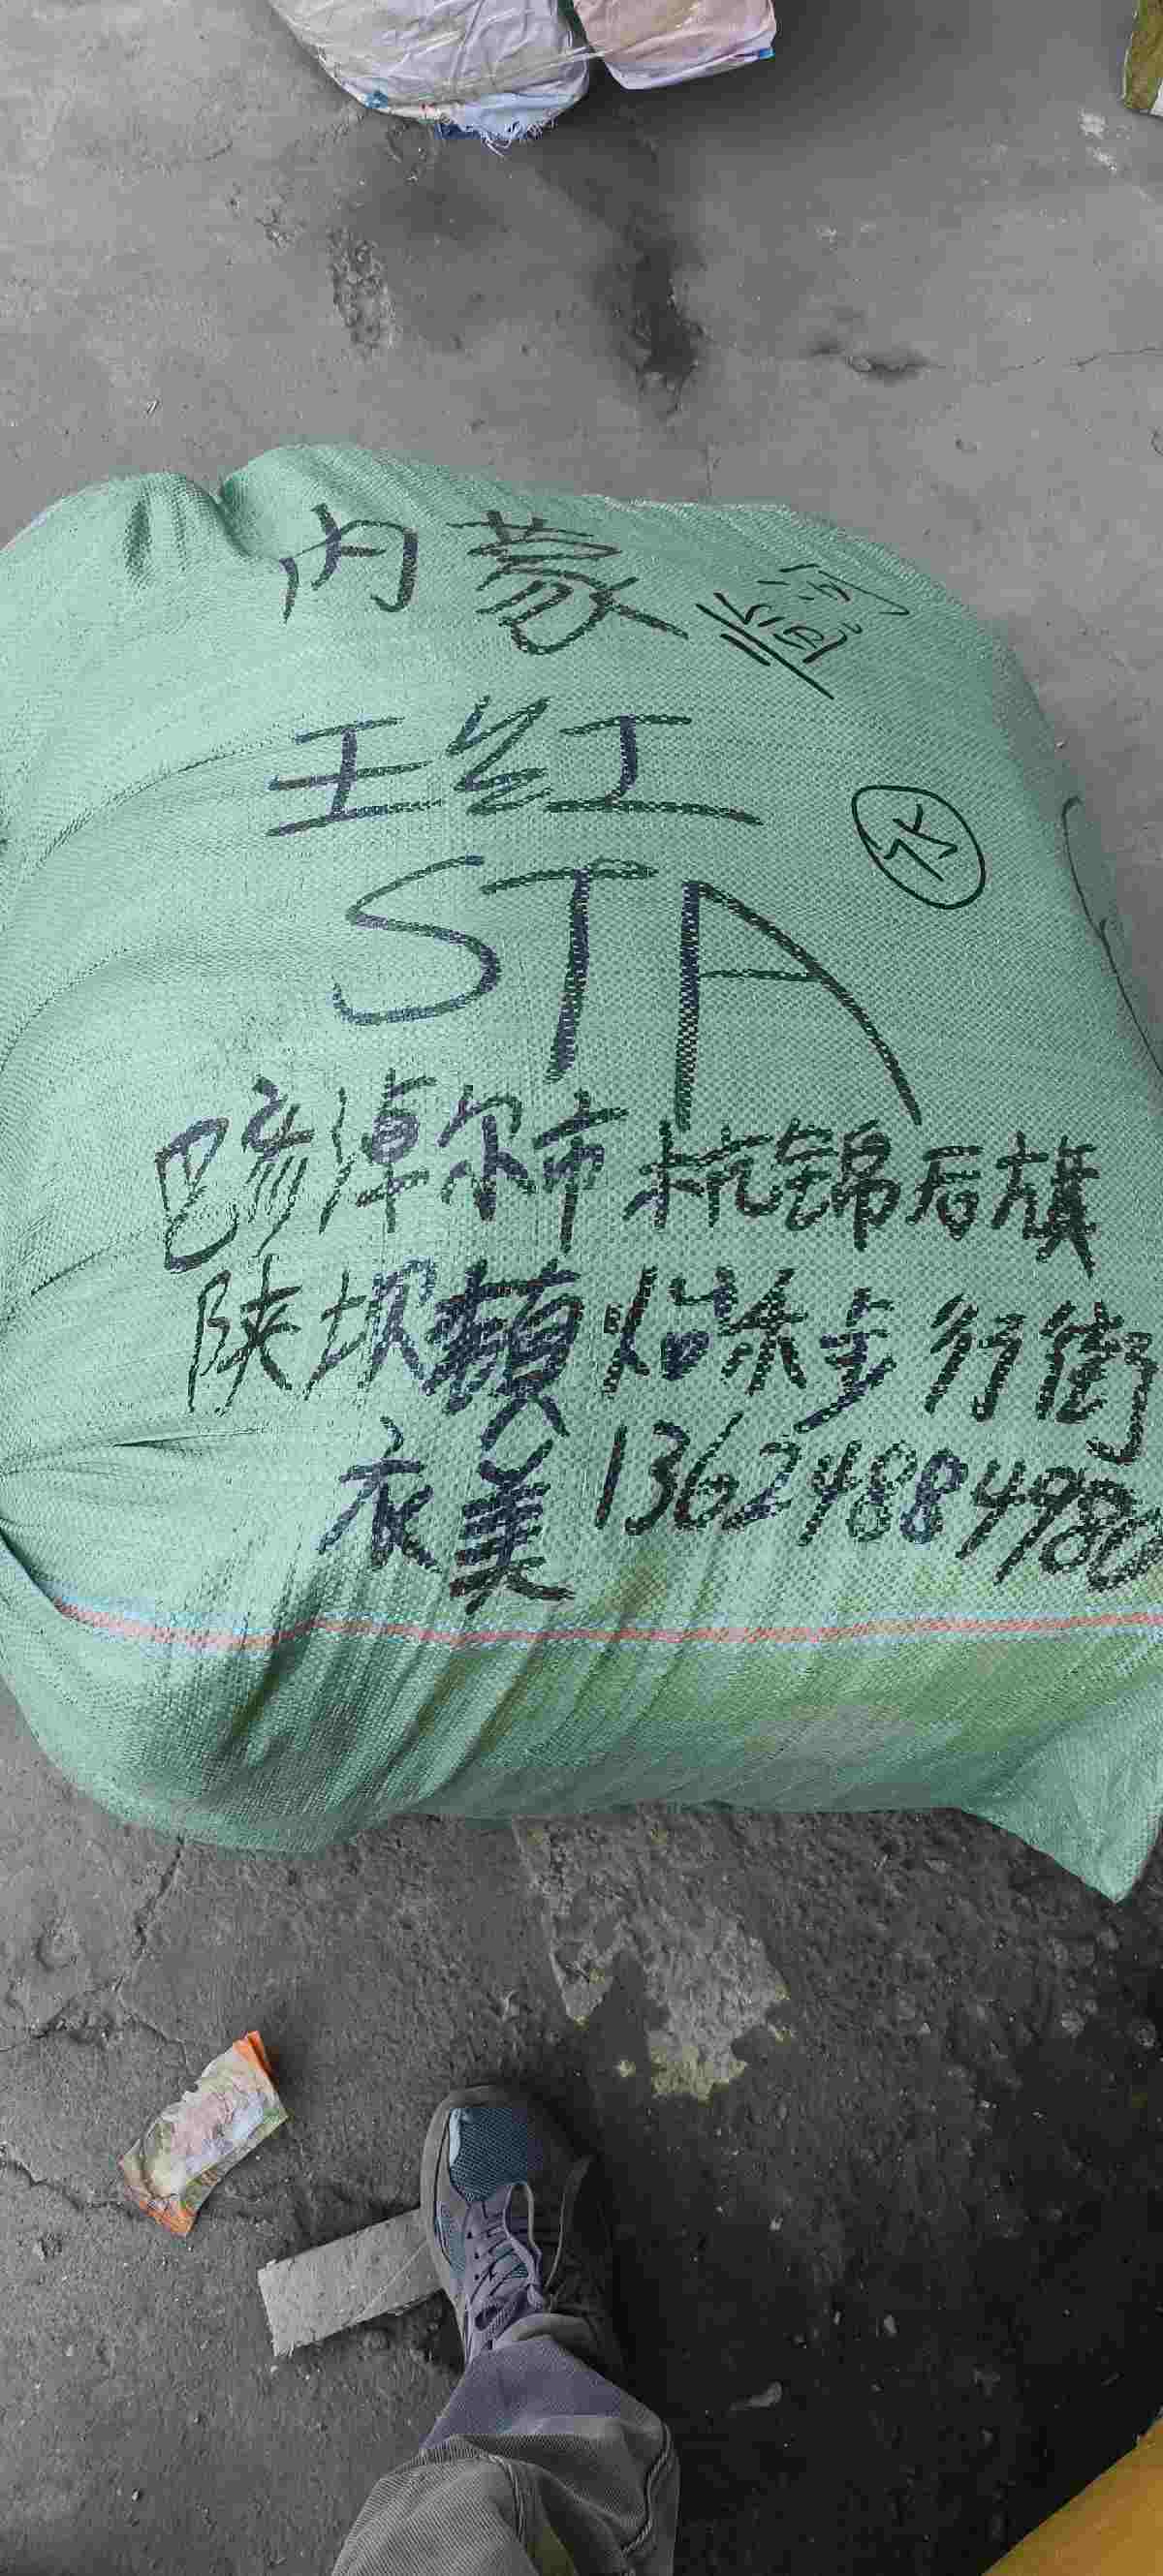 内蒙
王红
水
STA
巴彦淖尔市杭锦后旗
陕坝镇怡乐步行街
衣美 13624884980